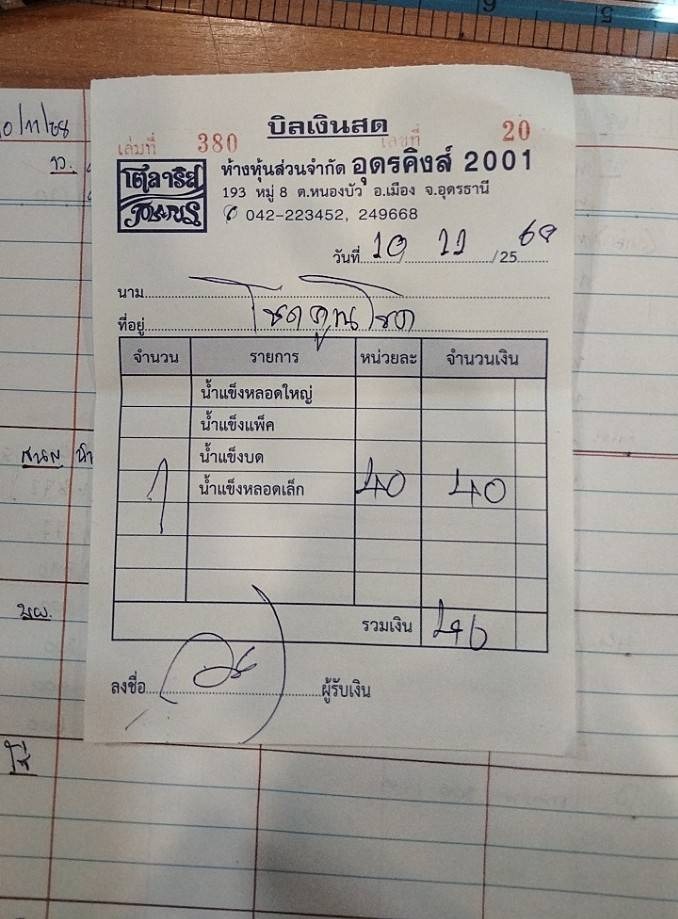 บิลเงินสด
เล่มที่ 380 เลขที่ 20
ห้างหุ้นส่วนจำกัด อุดรคิงส์ 2001
193 หมู่ 8 ต.หนองบัว อ.เมือง จ.อุดรธานี
042-223452, 249668
วันที่ 10 11 /25 68
นาม
ที่อยู่
จำนวน รายการ หน่วยละ จำนวนเงิน
น้ำแข็งหลอดใหญ่
น้ำแข็งแพ็ค
น้ำแข็งบด
1 น้ำแข็งหลอดเล็ก 40 40
รวมเงิน
ลงชื่อ ผู้รับเงิน